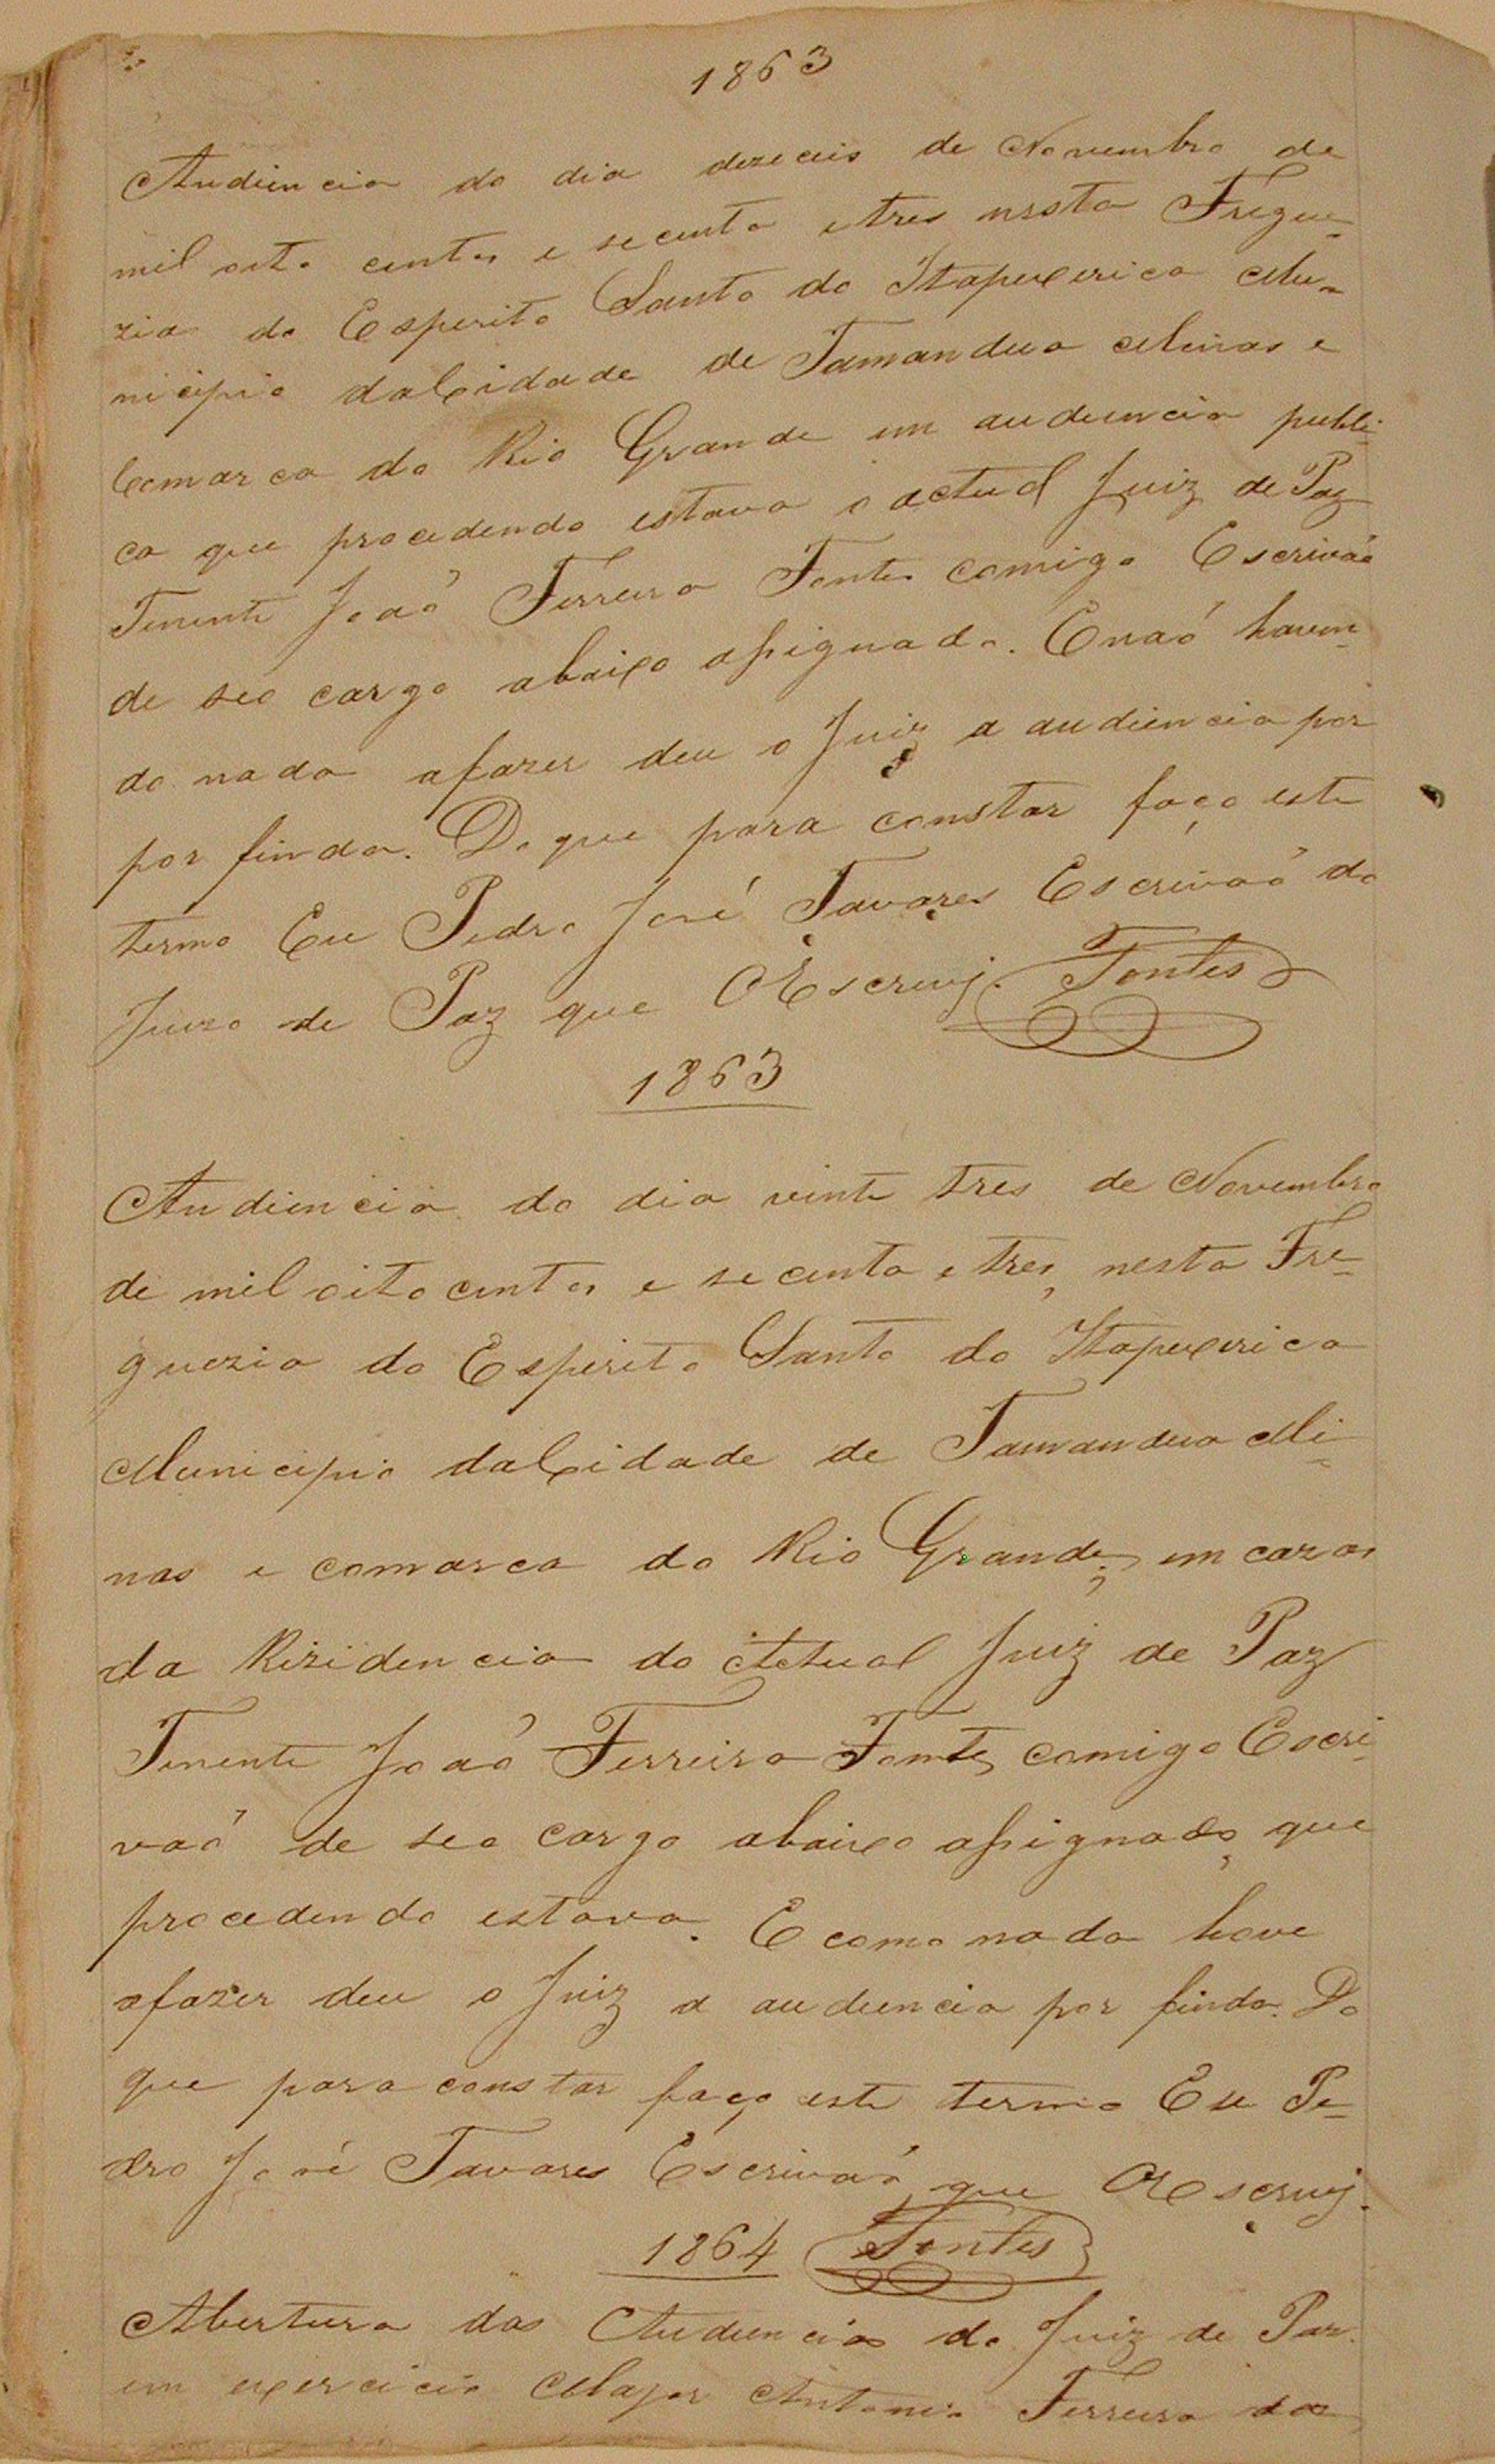 1863
Audiencia do dia dezeceis de Novembro de
mil oito centos e secenta e tres nesta Fregue-
zia do Esperito Santo do Itapexerica Mu-
nicipio da Cidade de Tamandua Minas e
Comarca do Rio Grande em audiencia publi-
ca que procedendo estava o actual Juiz de Paz
Tenente Joaõ Ferreira Fontes comigo Escrivaõ
de seo cargo abaixo assignado. E naõ haven-
do nada afazer deu o Juiz a audiencia por
por finda. Do que para constar faço este
termo Eu Pedro José Tavares Escrivaõ do
Juizo de Paz que O Escrevj. Fontes
1863
Audiencia do dia vinte tres de Novembro
de mil oito centos e secenta e tres, nesta Fre-
guezia do Esperito Santo do Itapexerica
Municipio da Cidade de Tamandua Mi-
nas e comarca do Rio Grande, em cazas
da Rizidencia do Actual Juiz de Paz
Tenente Joaõ Ferreira Fontes comigo Escri-
vaõ de seo cargo abaixo assignado, que
procedendo estava. E como nada hove
afazer deu o Juiz a audiencia por finda. Do
que para constar faço este termo Eu Pe-
dro José Tavares Escrivaõ que O Escrevj.
1864 Fontes
Abertura das Audiencias do Juiz de Paz
em exercicio Major Antonio Ferreira da